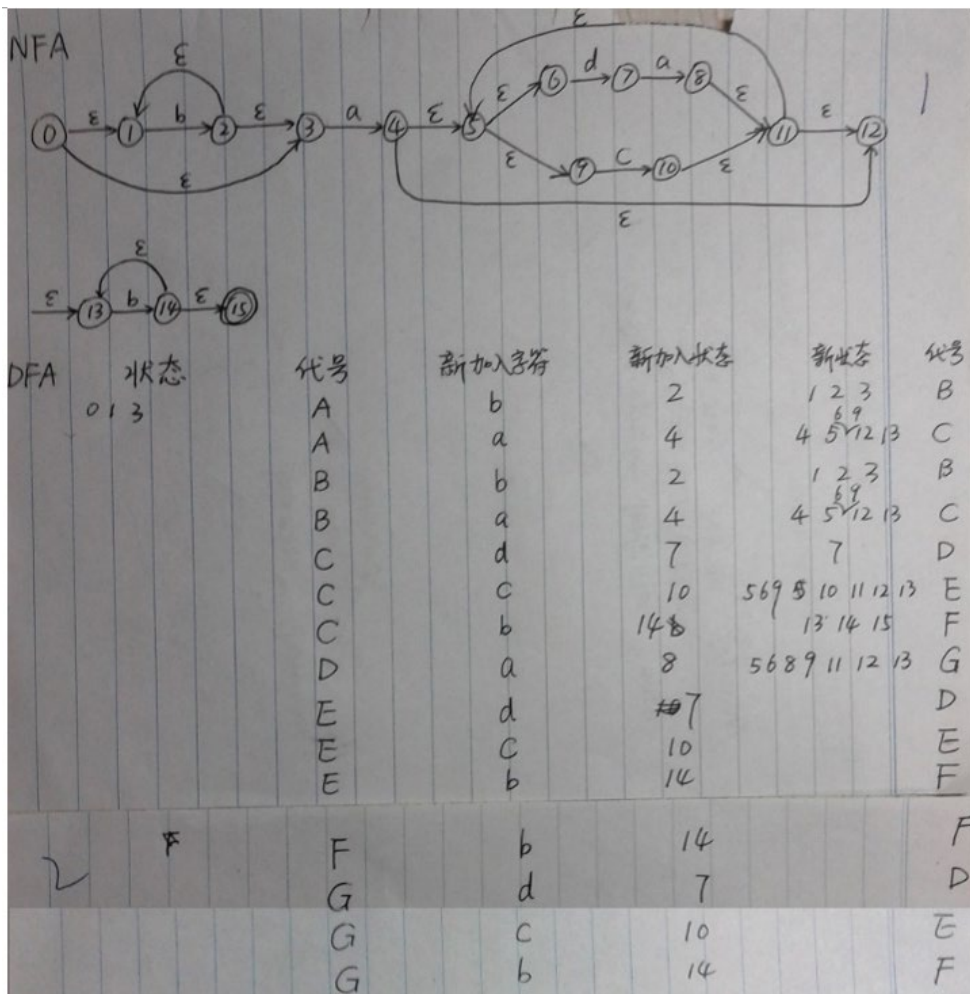 NFA
ε
ε d a
0 ε 1 b 2 ε 3 a 4 ε 5 ε 6 7 8 ε 11 ε 12
ε 9 c 10 ε
ε
ε
ε
ε 13 b 14 ε 15
1
DFA 状态 代号 新加入字符 新加入状态 新状态 代号
0 1 3 A b 2 1 2 3 B
A a 4 4 5 6 9 12 13 C
B b 2 1 2 3 B
B a 4 4 5 6 9 12 13 C
C d 7 7 D
C c 10 5 6 9 10 11 12 13 E
C b 14 13 14 15 F
D a 8 5 6 8 9 11 12 13 G
E d 7 D
E c 10 E
E b 14 F
2 F b 14 F
G d 7 D
G c 10 E
G b 14 F